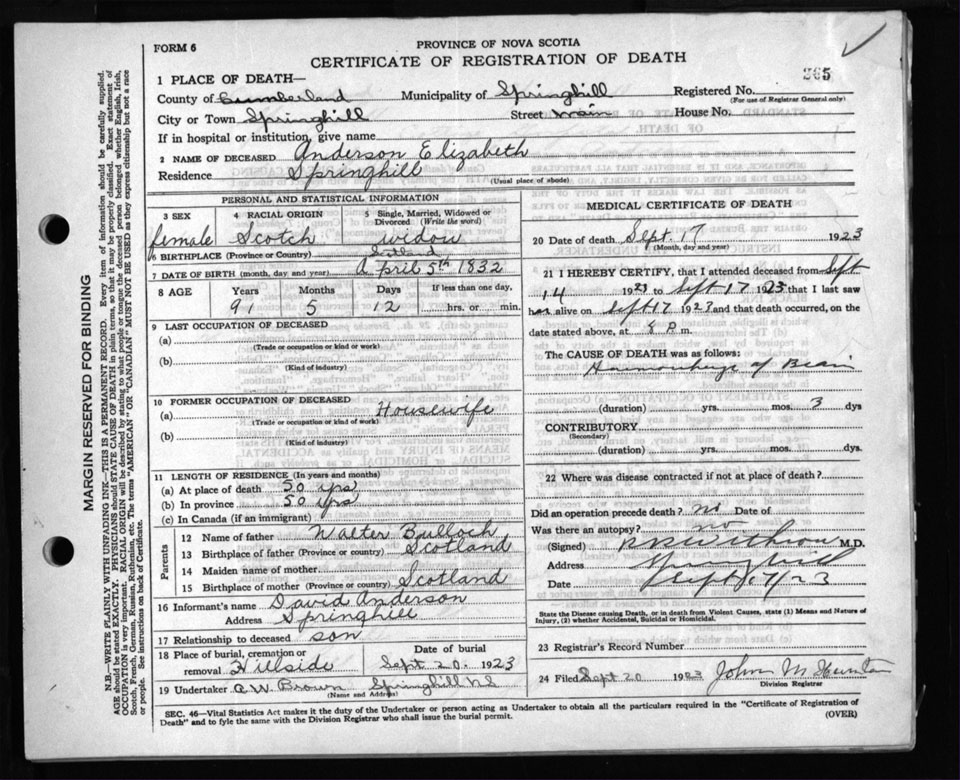 FORM 6
PROVINCE OF NOVA SCOTIA
CERTIFICATE OF REGISTRATION OF DEATH
365
1 PLACE OF DEATH—
County of Cumberland Municipality of Springhill Registered No.
(For use of Registrar General only)
City or Town Springhill Street Main House No.
If in hospital or institution, give name
2 NAME OF DECEASED Anderson Elizabeth
Residence Springhill
(Usual place of abode)
PERSONAL AND STATISTICAL INFORMATION
3 SEX 4 RACIAL ORIGIN 5 Single, Married, Widowed or Divorced (Write the word)
female Scotch widow
6 BIRTHPLACE (Province or Country) Scotland
7 DATE OF BIRTH (month, day and year) April 5th 1832
8 AGE Years Months Days If less than one day,
91 5 12 hrs. or min.
9 LAST OCCUPATION OF DECEASED
(a)
(Trade or occupation or kind of work)
(b)
(Kind of industry)
10 FORMER OCCUPATION OF DECEASED
(a) Housewife
(Trade or occupation or kind of work)
(b)
(Kind of industry)
11 LENGTH OF RESIDENCE (In years and months)
(a) At place of death 50 yrs
(b) In province 50 yrs
(c) In Canada (if an immigrant)
Parents
12 Name of father Walter Bullock
13 Birthplace of father (Province or country) Scotland
14 Maiden name of mother
15 Birthplace of mother (Province or country) Scotland
16 Informant's name David Anderson
Address Springhill
17 Relationship to deceased son
18 Place of burial, cremation or removal Hillside
Date of burial
Sept 20. 1923
19 Undertaker A.W. Brown Springhill NS
(Name and Address)
MEDICAL CERTIFICATE OF DEATH
20 Date of death Sept. 17 1923
(Month, day and year)
21 I HEREBY CERTIFY, that I attended deceased from Sept
14 1923 to Sept 17 1923 that I last saw
her alive on Sept 17 1923 and that death occurred, on the
date stated above, at P.m.
The CAUSE OF DEATH was as follows:
Haemorrhage of Brain
(duration) yrs. mos. 3 dys
CONTRIBUTORY
(Secondary)
(duration) yrs. mos. dys.
22 Where was disease contracted if not at place of death?
Did an operation precede death? no Date of
Was there an autopsy? no
(Signed) M.D.
Address Springhill
Date Sept 17/23
State the Disease causing Death, or in death from Violent Causes, state (1) Means and Nature of
Injury, (2) whether Accidental, Suicidal or Homicidal.
23 Registrar's Record Number
24 Filed Sept 20 1923 John M Hunter
Division Registrar
SEC. 46—Vital Statistics Act makes it the duty of the Undertaker or person acting as Undertaker to obtain all the particulars required in the "Certificate of Registration of
Death" and to fyle the same with the Division Registrar who shall issue the burial permit.
(OVER)
MARGIN RESERVED FOR BINDING
N.B.—WRITE PLAINLY WITH UNFADING INK—THIS IS A PERMANENT RECORD. Every item of information should be carefully supplied.
AGE should be stated EXACTLY. PHYSICIANS should STATE CAUSE OF DEATH in plain terms, so that it may be properly classified. Exact statement of
OCCUPATION is very important. RACIAL ORIGIN will be described by stating to what people or tongue the deceased person belonged whether English, Irish,
Scotch, French, German, Russian, Ruthenian, etc. The terms "AMERICAN" OR "CANADIAN" MUST NOT BE USED as they express citizenship but not a race
or people. See instructions on back of Certificate.